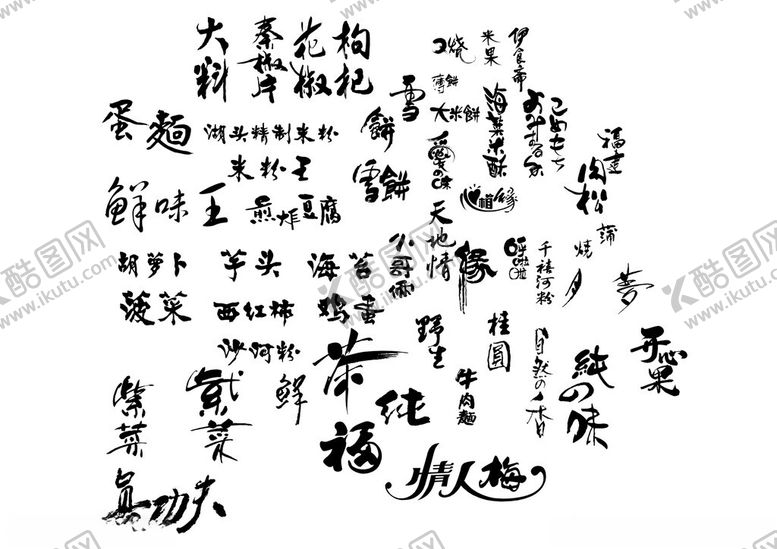 大料
秦椒片
花椒
枸杞
口烧
米果
伊食帝
薄餅
大米餅
海菜米酥
こめもち
福建
肉松
雪
餅
雪餅
蛋麵
湖头精制米粉
米粉王
鲜味王
煎炸豆腐
愛の味
相缘
天地情
小哥俩
缘
呼啦啦
千禧河粉
烧
蒲
月
夢
胡萝卜
芋头
海苔
菠菜
西红柿
鸡蛋
沙河粉
野生
桂圓
自然の香
純の味
开心果
紫菜
紫菜
鲜
茶
纯
福
牛肉麵
真功夫
情人梅
酷图网
www.ikutu.com